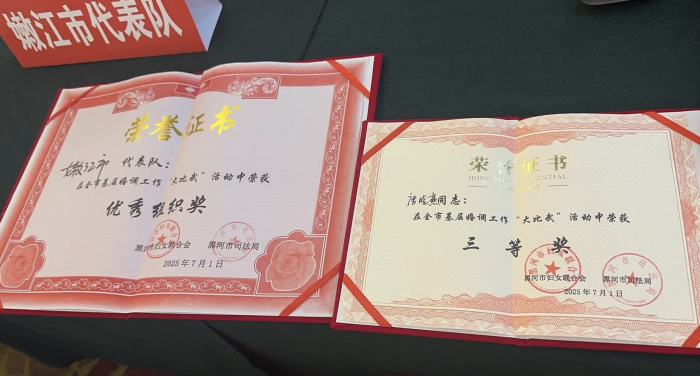 嫩江市代表队
荣誉证书
嫩江市 代表队：
在全市基层婚调工作“大比武”活动中荣获
优秀组织奖
黑河市妇女联合会 黑河市司法局
2025年7月1日
荣誉证书
同志：
在全市基层婚调工作“大比武”活动中荣获
三等奖
黑河市妇女联合会 黑河市司法局
2025年7月1日